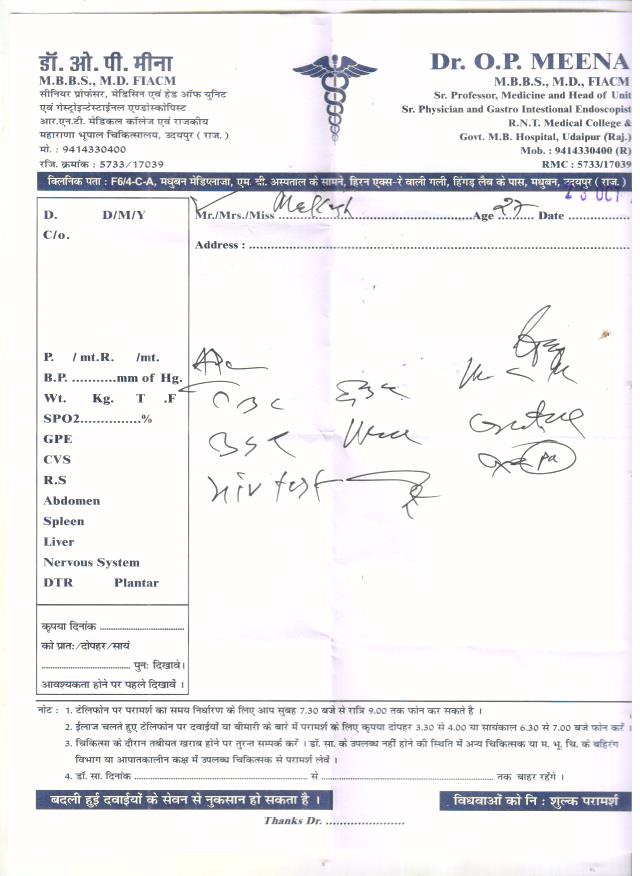 डॉ. ओ. पी. मीना
M.B.B.S., M.D. FIACM
सीनियर प्रोफेसर, मेडिसिन एवं हेड ऑफ यूनिट
एवं गेस्ट्रोइन्टेस्टाईनल एण्डोस्कोपिस्ट
आर.एन.टी. मेडिकल कॉलेज एवं राजकीय
महाराणा भूपाल चिकित्सालय, उदयपुर ( राज. )
मो. : 9414330400
रजि. क्रमांक : 5733/17039
Dr. O.P. MEENA
M.B.B.S., M.D., FIACM
Sr. Professor, Medicine and Head of Unit
Sr. Physician and Gastro Intestional Endoscopist
R.N.T. Medical College &
Govt. M.B. Hospital, Udaipur (Raj.)
Mob. : 9414330400 (R)
RMC : 5733/17039
क्लिनिक पता : F6/4-C-A, मधुबन मेडिप्लाजा, एम. बी. अस्पताल के सामने, हिरन एक्स-रे वाली गली, हिंगड़ लैब के पास, मधुबन, उदयपुर ( राज. )
OCT
Mr./Mrs./Miss ........ Age 27 Date ........
Address : ........
D. D/M/Y
C/o.
P. / mt.R. /mt.
B.P. ...........mm of Hg.
Wt. Kg. T .F
SPO2..............%
GPE
CVS
R.S
Abdomen
Spleen
Liver
Nervous System
DTR Plantar
CBC
HIV test
कृपया दिनांक ........
को प्रातः/दोपहर/सायं
........ पुनः दिखावे।
आवश्यकता होने पर पहले दिखावें ।
नोट : 1. टेलिफोन पर परामर्श का समय निर्धारण के लिए आप सुबह 7.30 बजे से रात्रि 9.00 तक फोन कर सकते है ।
2. ईलाज चलते हुए टेलिफोन पर दवाईयों या बीमारी के बारे में परामर्श के लिए कृपया दोपहर 3.30 से 4.00 या सायंकाल 6.30 से 7.00 बजे फोन करें ।
3. चिकित्सा के दौरान तबीयत खराब होने पर तुरन्त सम्पर्क करें । डॉ. सा. के उपलब्ध नहीं होने की स्थिति में अन्य चिकित्सक या म. भू. चि. के बहिरंग
विभाग या आपातकालीन कक्ष में उपलब्ध चिकित्सक से परामर्श लेवें ।
4. डॉ. सा. दिनांक ........ से ........ तक बाहर रहेंगे ।
बदली हुई दवाईयों के सेवन से नुकसान हो सकता है ।
विधवाओं को नि : शुल्क परामर्श
Thanks Dr. ......................